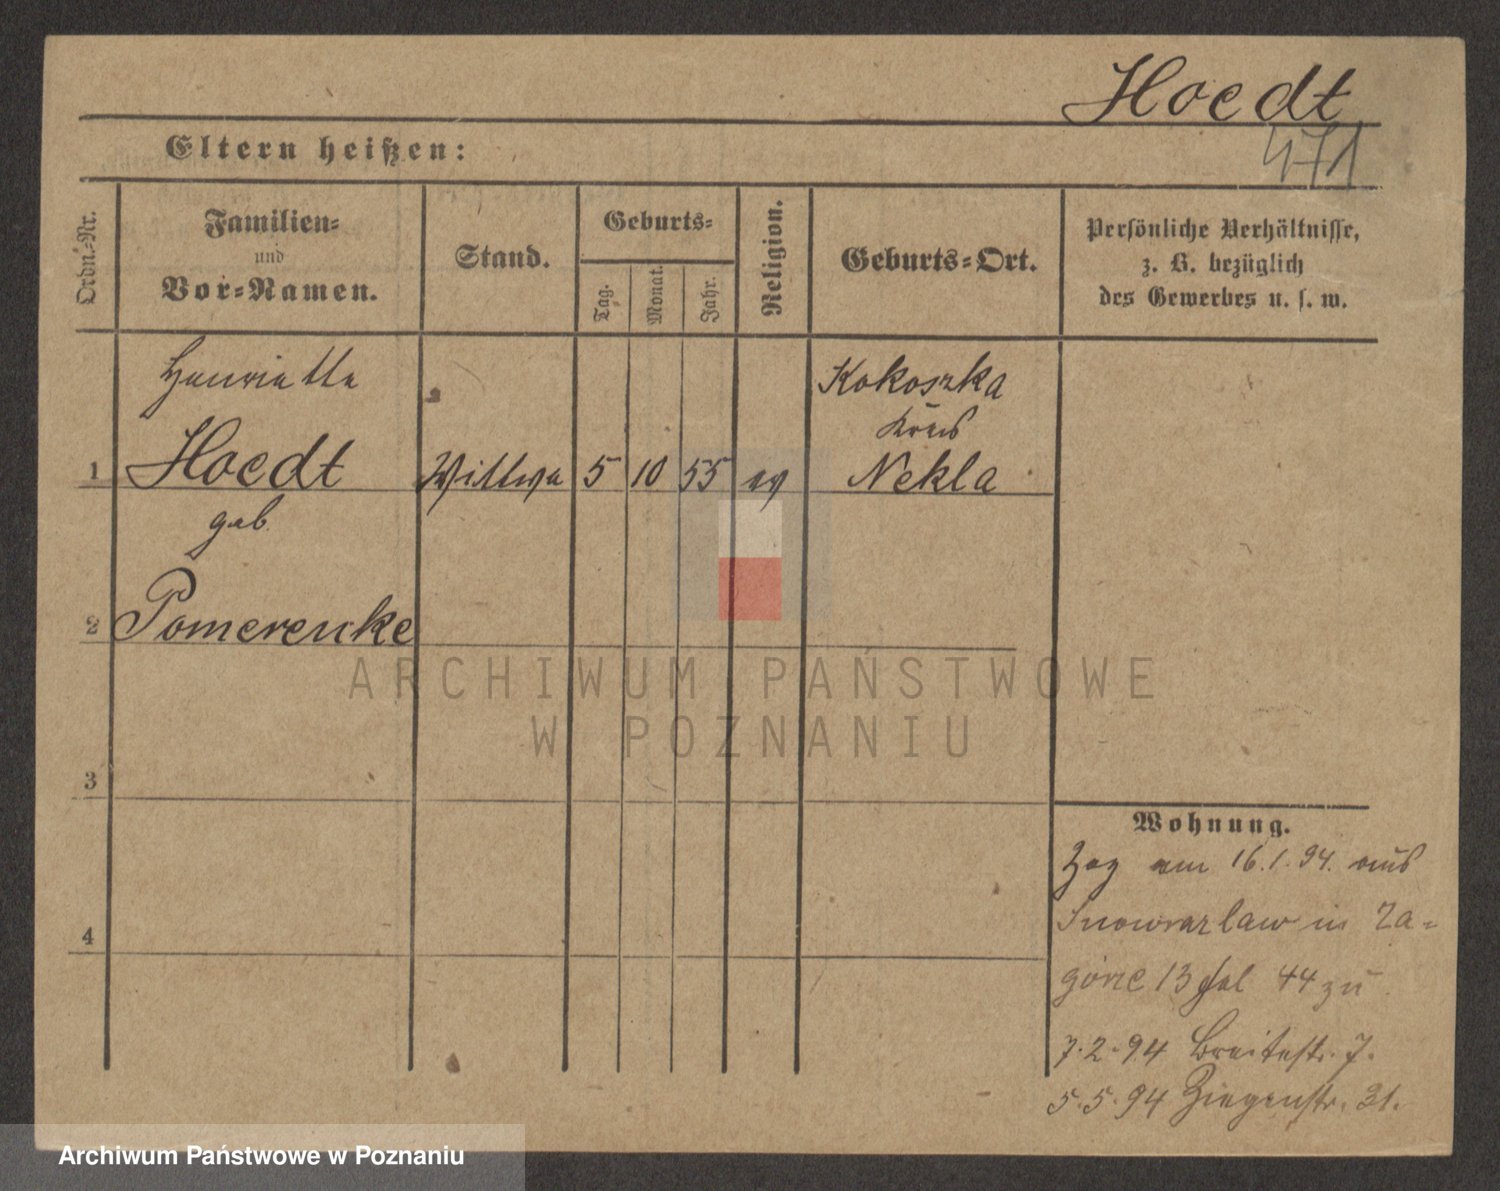 Hoedt
471
Eltern heißen:
Ordn.-Nr.
Familien-
und
Vor-Namen.
Stand.
Geburts-
Tag.
Monat.
Jahr.
Religion.
Geburts-Ort.
Persönliche Verhältnisse,
z. B. bezüglich
des Gewerbes u. s. w.
Henriette
1 Hoedt Wittwe 5 10 55 ev
Kokoszka
Kreis
Nekla
geb.
2 Pomerenke
3
4
Wohnung.
Zog am 16.1.94. aus
Inowrazlaw in Za-
górze 13 bei 44 zu
7.2.94 Breitestr. 7.
5.5.94 Ziegenstr. 21.
ARCHIWUM PAŃSTWOWE
W POZNANIU
Archiwum Państwowe w Poznaniu